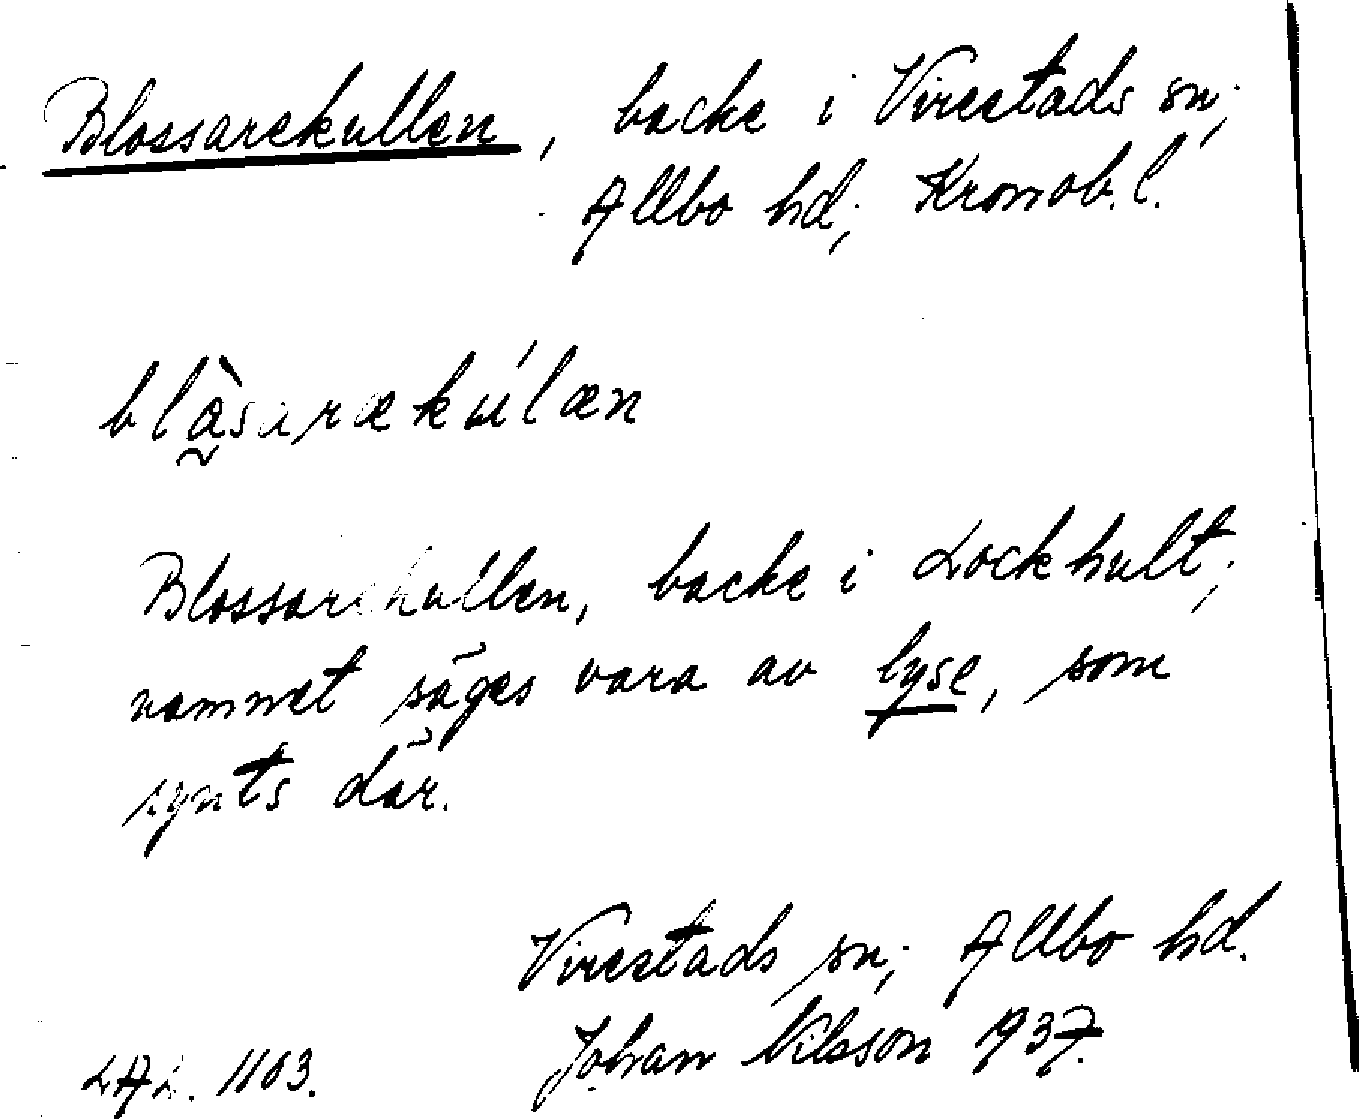 Blossarekullen, backe i Virestads sn;
Allbo hd; Kronob. l.
blàsarækúlæn
Blossarekullen, backe i Lockhult;
namnet säges vara av lyse, som
synts där.
Virestads sn; Allbo hd.
Johan Nilsson 1937.
LAL. 1103.